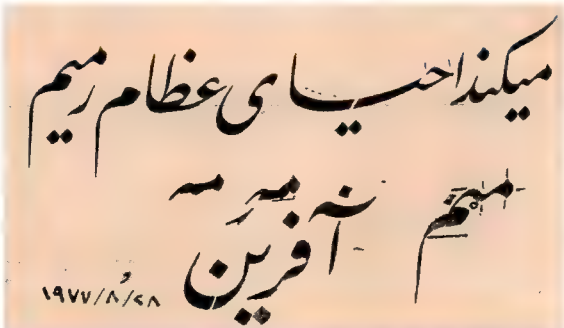 میکند احیای عظام رمیم
میم
آفرین
۱۹۷۷/۸/۲۸